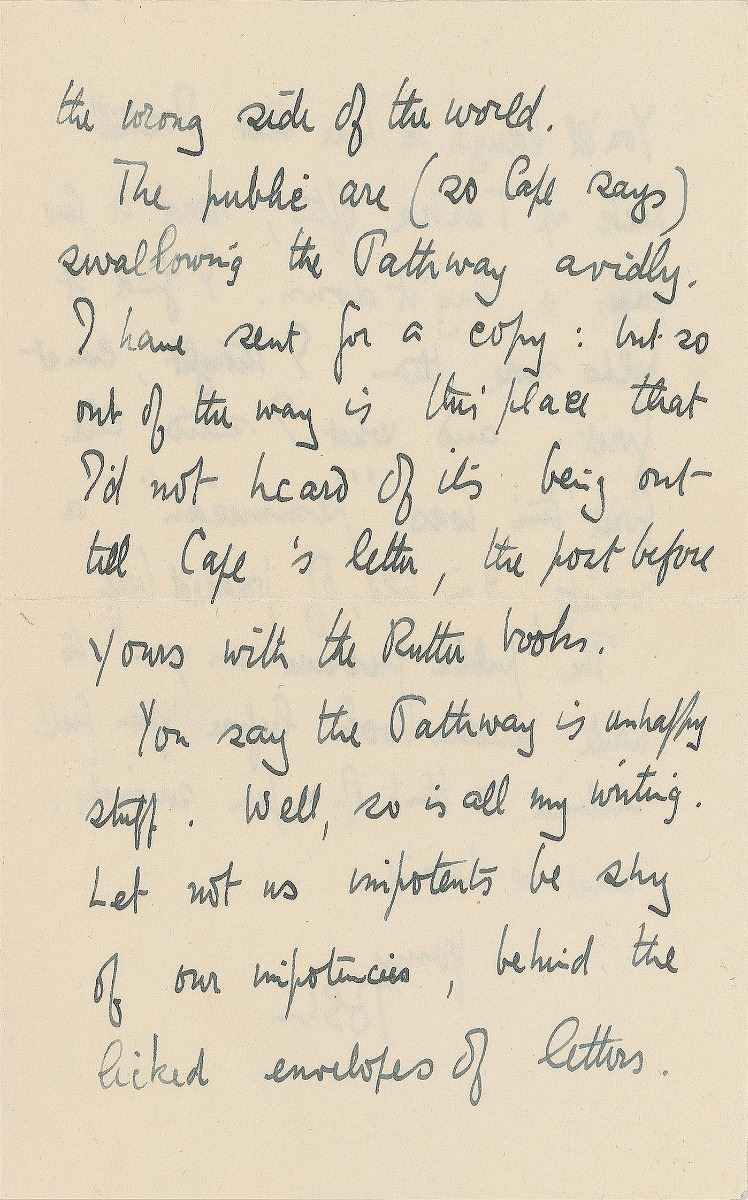 the wrong side of the world.
The public are (so Cape says)
swallowing the Pathway avidly.
I have sent for a copy: but so
out of the way is this place that
I'd not heard of its being out
till Cape's letter, the post before
Yours with the Rutter books.
You say the Pathway is unhappy
stuff. Well, so is all my writing.
Let not us impotents be shy
of our impotencies, behind the
licked envelopes of letters.